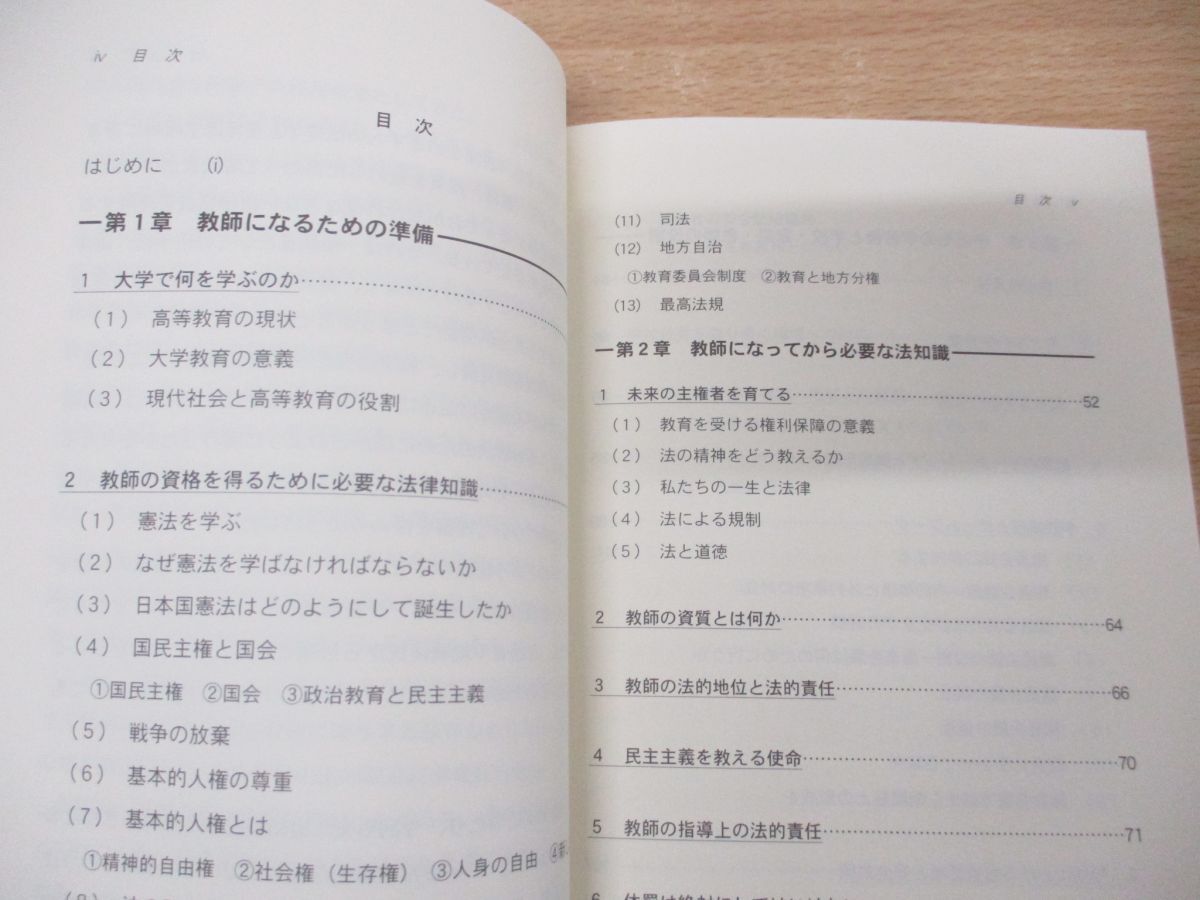 iv 目 次
目 次
はじめに (i)
第1章 教師になるための準備
1 大学で何を学ぶのか
(1) 高等教育の現状
(2) 大学教育の意義
(3) 現代社会と高等教育の役割
2 教師の資格を得るために必要な法律知識
(1) 憲法を学ぶ
(2) なぜ憲法を学ばなければならないか
(3) 日本国憲法はどのようにして誕生したか
(4) 国民主権と国会
①国民主権 ②国会 ③政治教育と民主主義
(5) 戦争の放棄
(6) 基本的人権の尊重
(7) 基本的人権とは
①精神的自由権 ②社会権(生存権) ③人身の自由 ④
目 次 v
(11) 司法
(12) 地方自治
①教育委員会制度 ②教育と地方分権
(13) 最高法規
第2章 教師になってから必要な法知識
1 未来の主権者を育てる 52
(1) 教育を受ける権利保障の意義
(2) 法の精神をどう教えるか
(3) 私たちの一生と法律
(4) 法による規制
(5) 法と道徳
2 教師の資質とは何か 64
3 教師の法的地位と法的責任 66
4 民主主義を教える使命 70
5 教師の指導上の法的責任 71
6 体罰は絶対にしてはいけない